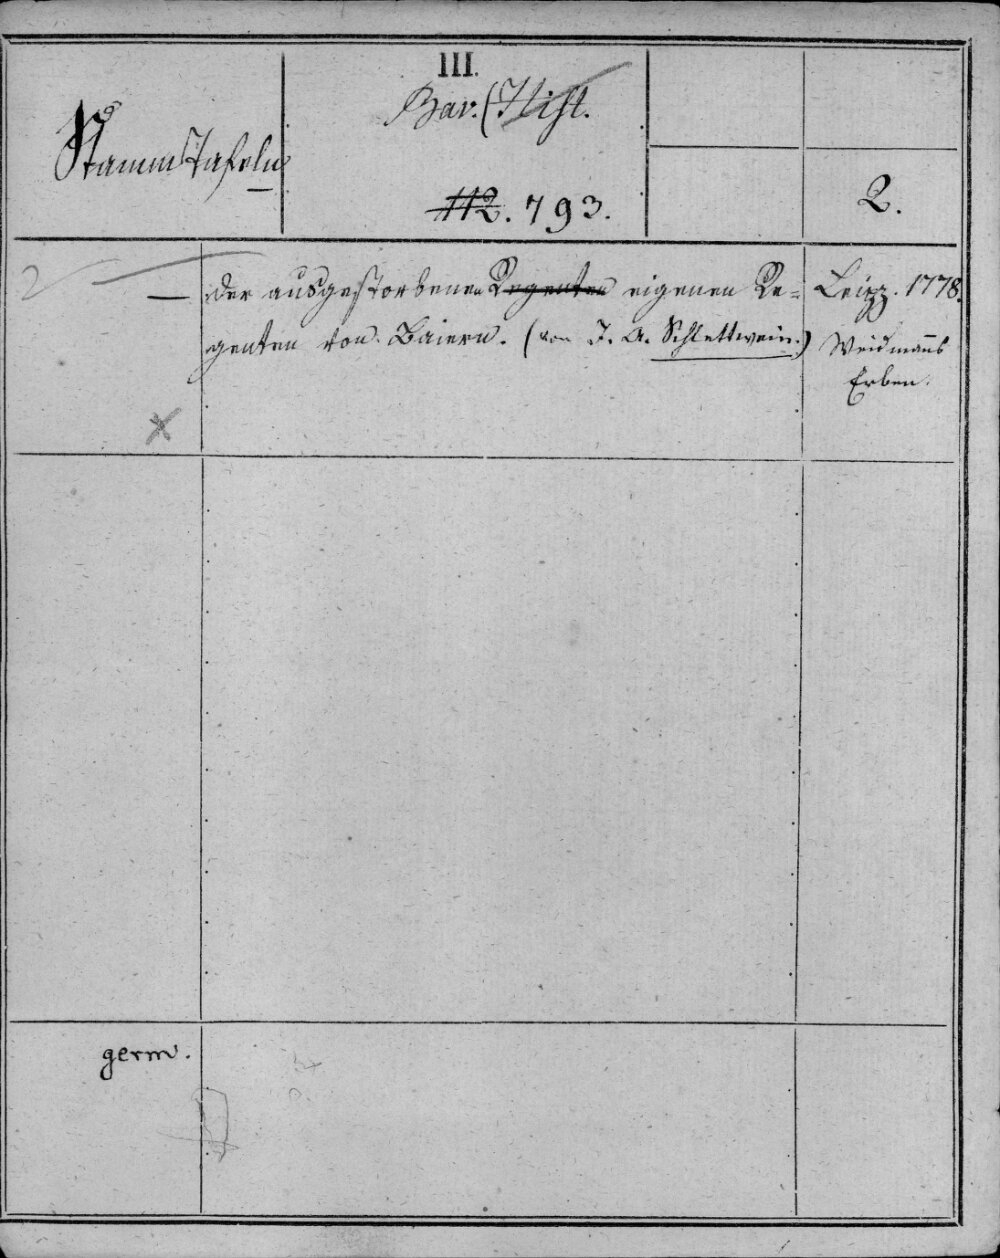 Stammtafeln
III.
Bav. (Hist.
112. 793.
2.
— der ausgestorbenen Regenten eigenen Re=
genten von Baiern. (von J. A. Schlettwein.)
Leipz. 1778.
Weidmanns
Erben.
germ.